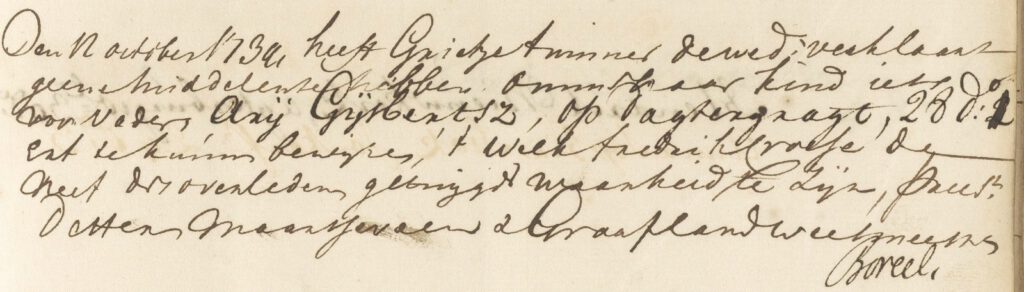 Den 12 october 1739, heeft Grietje tunner de wed: verklaart
geene middelen te hebben omme haar kind iets
voor vaders Arij Gijsbertsz, op d'agtergragt, 28 do: 1
ert te kunnen bewijse, 't welk fredrik Crosse de
Neef des overleden getuijgd waarheid te zijn, Præs:
Detten Maarseveen & Graafland weesmeestn
Boreel.